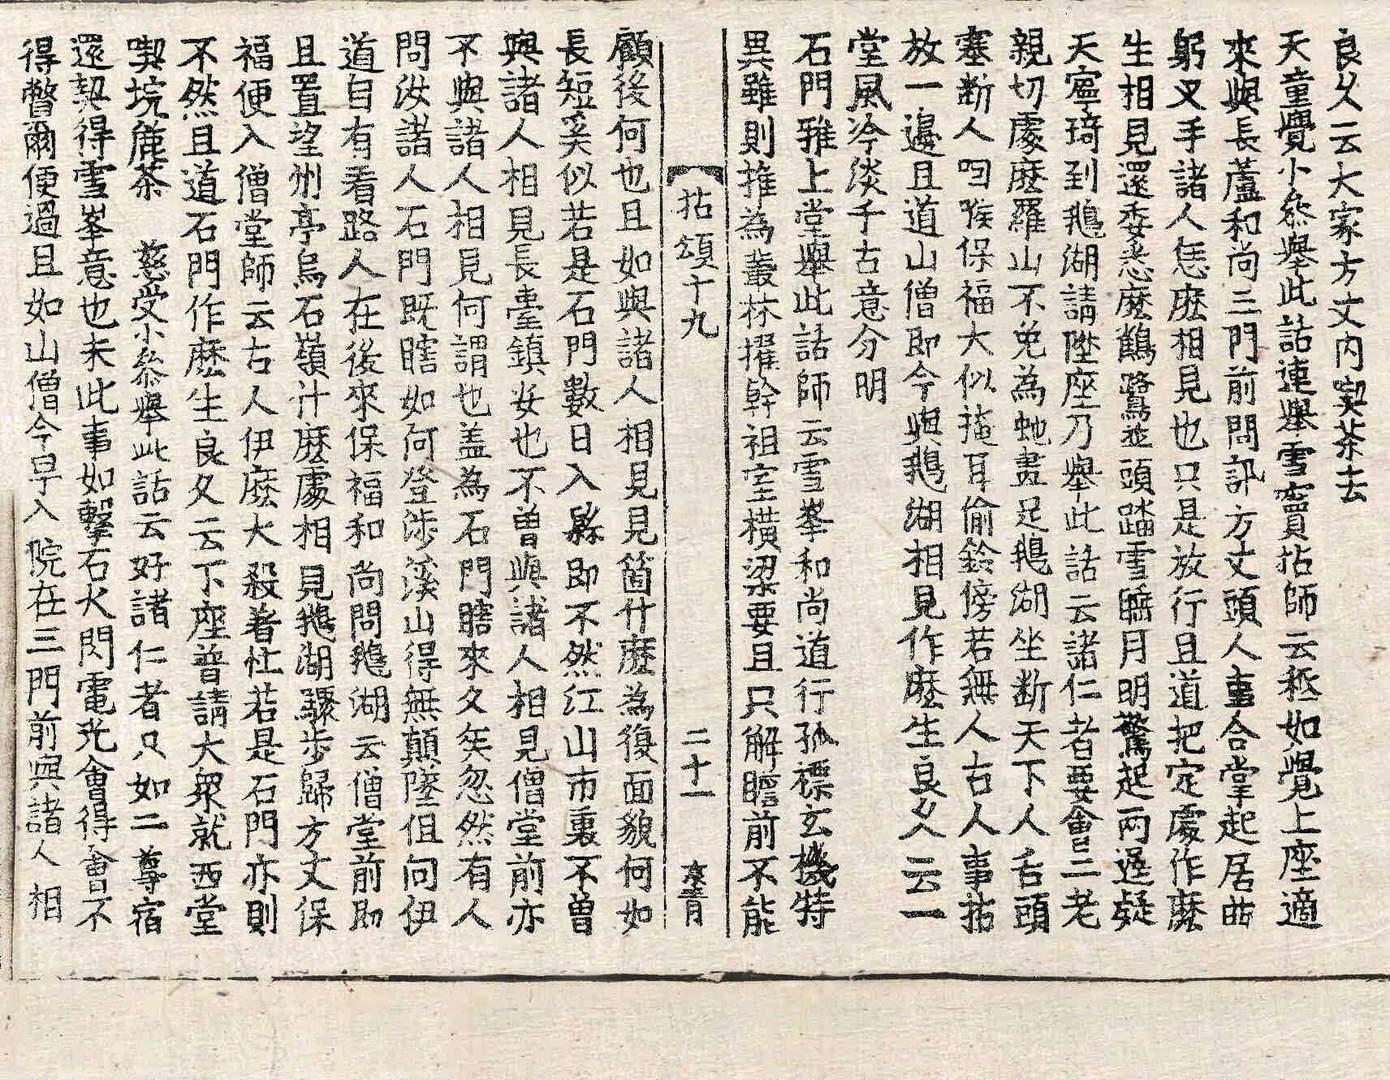 良久云大家方丈內喫茶去
天童覺小叅舉此話連舉雪竇拈師云秪如覺上座適
來與長蘆和尚三門前問訊方丈頭人事合掌起居曲
躬叉手諸人恁麽相見也只是放行且道把定處作麽
生相見還委悉麽鶴鷺並頭踏雪睡月明驚起兩遲疑
天寧琦到鵝湖請陞座乃舉此話云諸仁者要會二老
親切處麽羅山不免為虵畫足鵝湖坐斷天下人舌頭
塞斷人咽喉保福大似掩耳偷鈴傍若無人古人事拈
放一邊且道山僧即今與鵝湖相見作麽生良久云一
堂風冷淡千古意分明
石門雅上堂舉此話師云雪峯和尚道行孤標玄機特
異雖則推為叢林擢幹祖室橫梁要且只解瞻前不能
拈頌十九 二十一
顧後何也且如與諸人相見見箇什麽為復面貌何如
長短奚似若是石門數日入縣即不然江山市裏不曾
與諸人相見長臺鎮安也不曾與諸人相見僧堂前亦
不與諸人相見何謂也盖為石門瞎來久矣忽然有人
問汝諸人石門既瞎如何登涉溪山得無顛墜但向伊
道自有看路人在後來保福和尚問鵝湖云僧堂前即
且置望州亭烏石嶺什麽處相見鵝湖驟步歸方丈保
福便入僧堂師云古人伊麽大殺着忙若是石門亦則
不然且道石門作麽生良久云下座普請大衆就西堂
喫埦麄茶 慈受小叅舉此話云好諸仁者只如二尊宿
還契得雪峯意也未此事如擊石火閃電光會得會不
得瞥爾便過且如山僧今早入院在三門前與諸人相